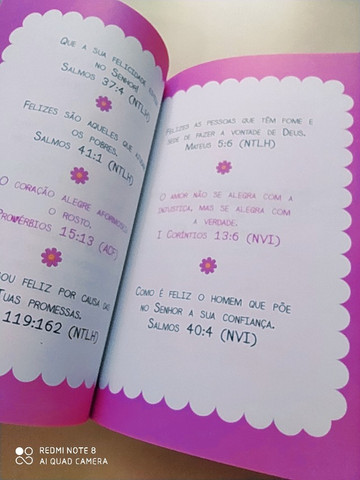 Que a sua felicidade
no Senhor!
Salmos 37:4 (NTLH)
Felizes são aqueles que
os pobres.
Salmos 41:1 (NTLH)
O coração alegre
o rosto.
Provérbios 15:13 (ACF)
sou feliz por causa das
Tuas promessas.
119:162 (NTLH)
Felizes as pessoas que têm fome e
sede de fazer a vontade de Deus.
Mateus 5:6 (NTLH)
O amor não se alegra com a
injustiça, mas se alegra com
a verdade.
I Coríntios 13:6 (NVI)
Como é feliz o homem que põe
no Senhor a sua confiança.
Salmos 40:4 (NVI)
REDMI NOTE 8
AI QUAD CAMERA